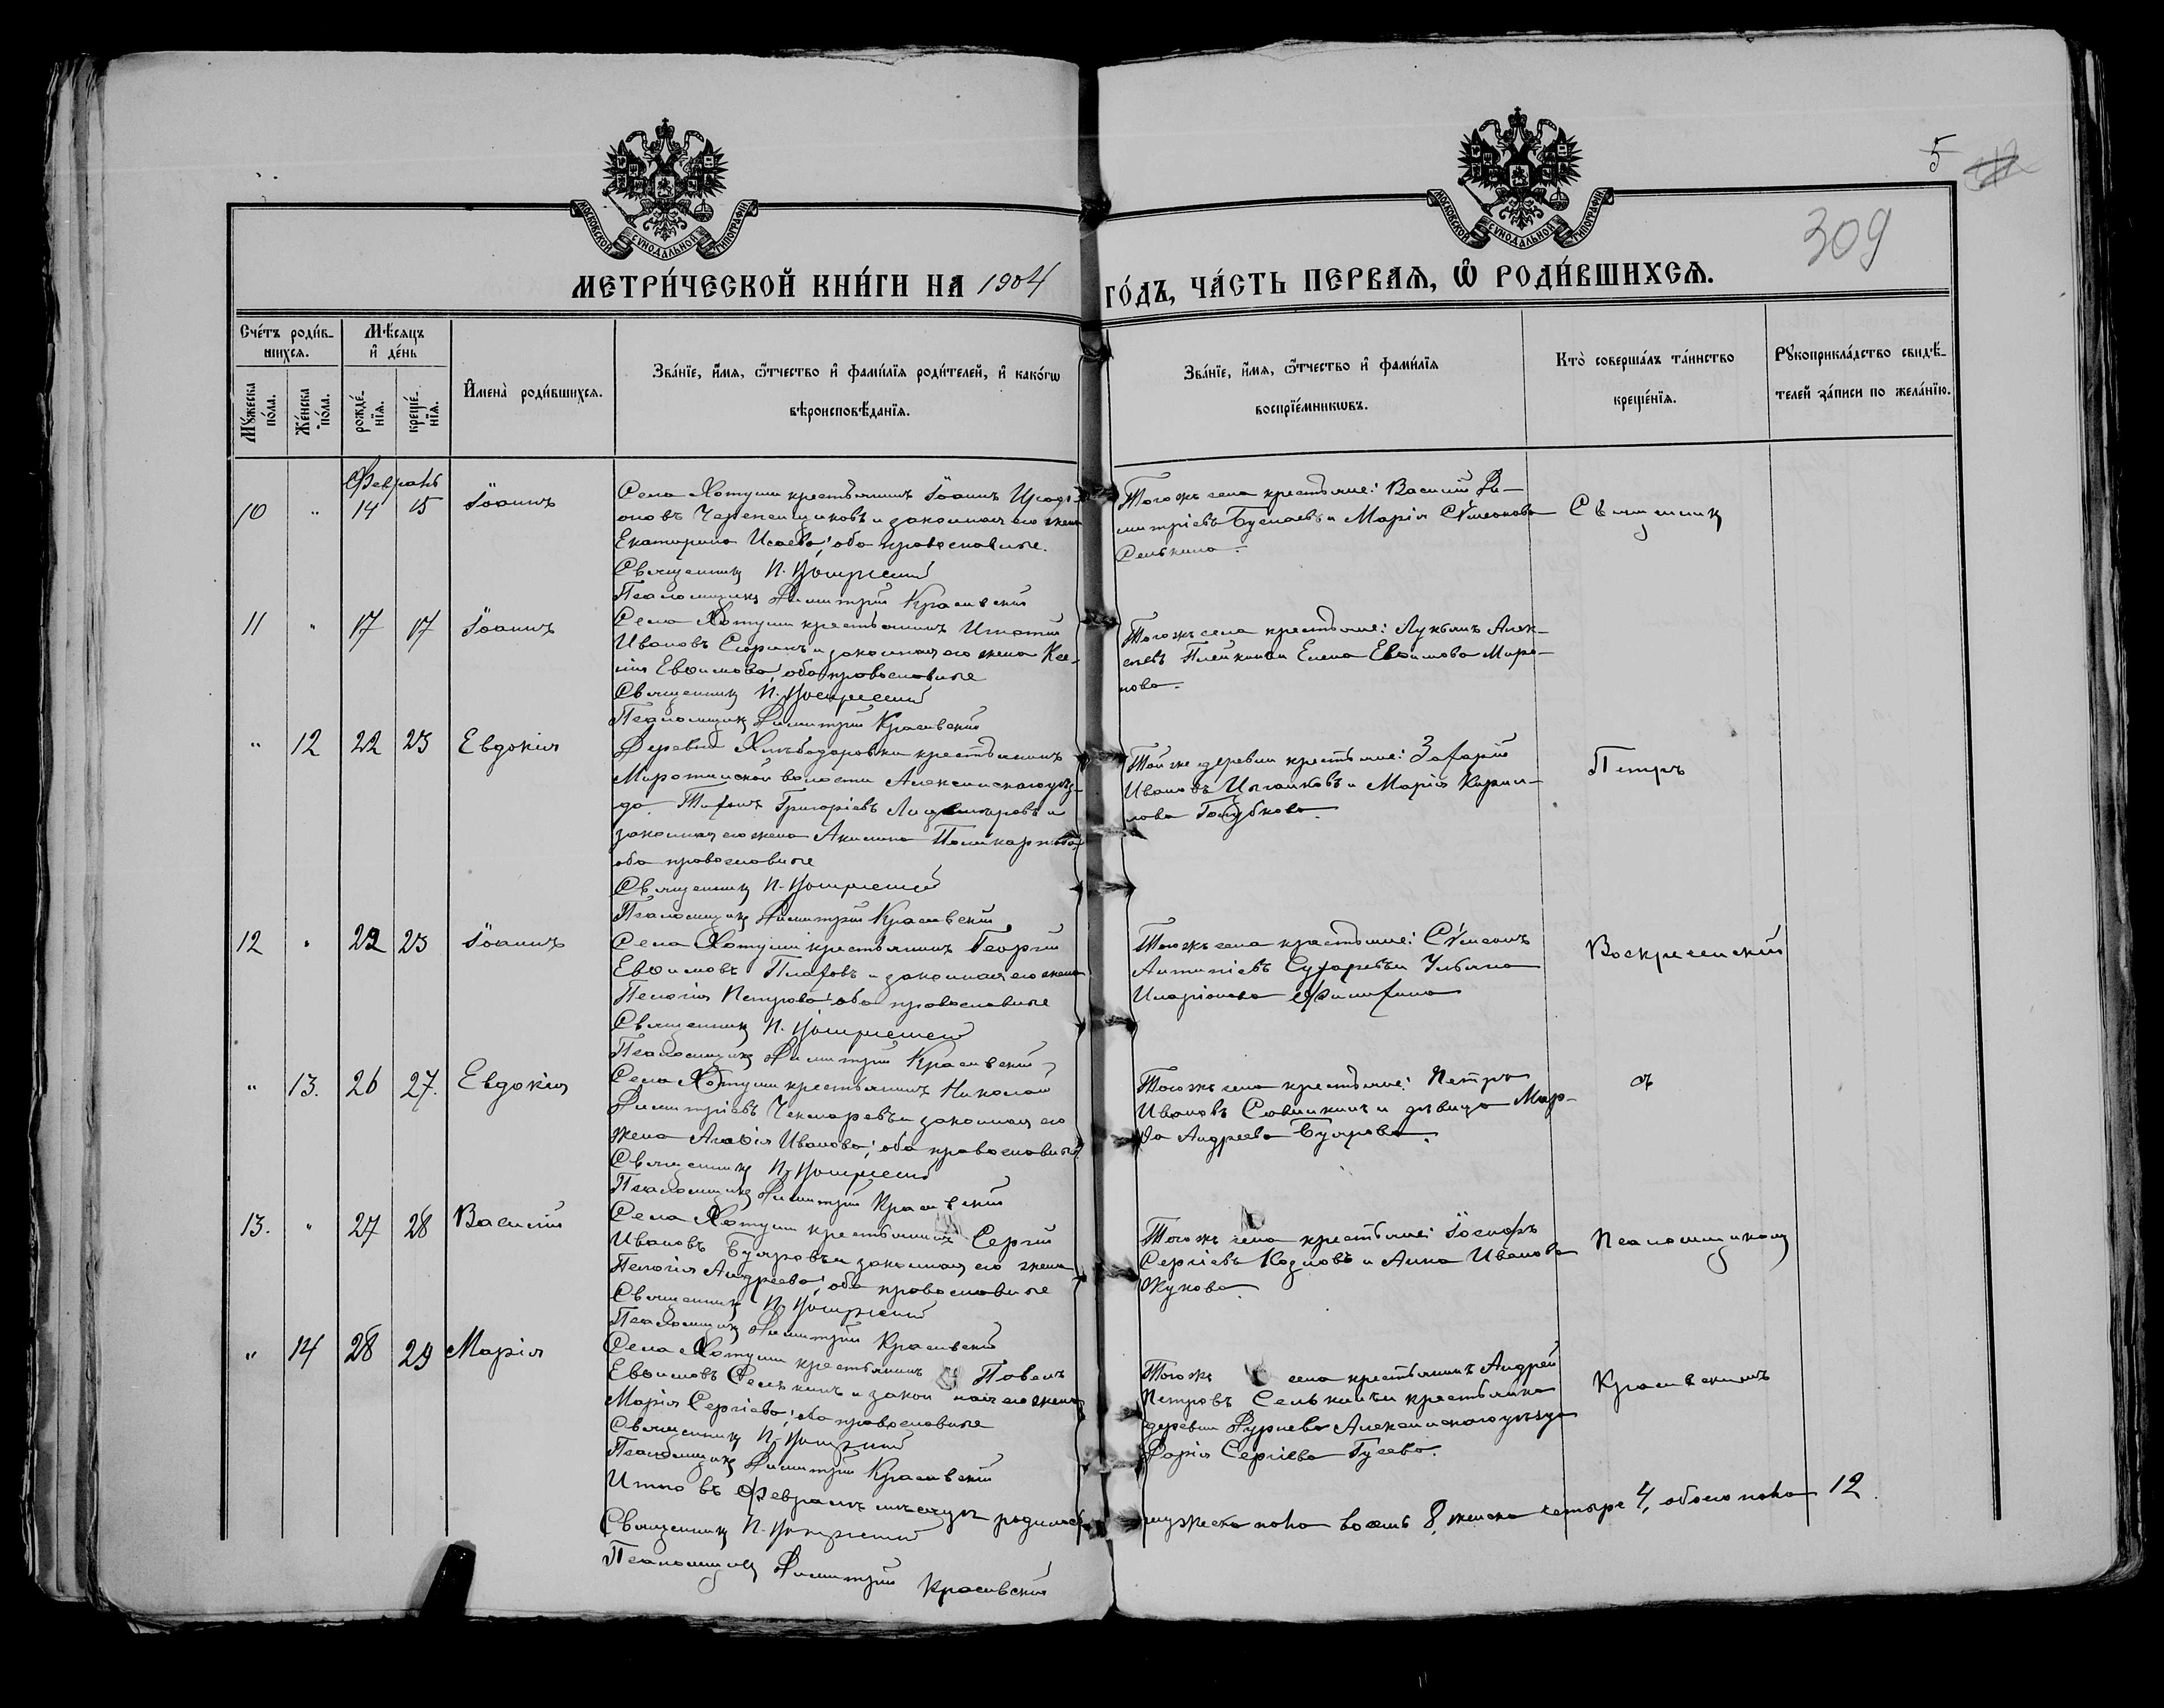 5
309
МОСКОВСКОЙ СУНОДАЛЬНОЙ ТИПОГРАФІИ
МОСКОВСКОЙ СУНОДАЛЬНОЙ ТИПОГРАФІИ
МЕТРИ́ЧЕСКОЙ КНИ́ГИ НА 1904 ГО́ДЪ, ЧА́СТЬ ПЕРВАЯ, Ѡ РОДИ́ВШИХСЯ.
Сче́тъ роди́вшихся.
Мꙋ́жеска по́ла.
Же́нска по́ла.
Мѣ́сяцъ и҆ де́нь
рожде́нїя.
креще́нїя.
И҆мена̀ роди́вшихся.
Зва́нїе, и҆́мя, ѻ҆́тчество и҆ фами́лїя роди́телей, и҆ како́гѡ
вѣроисповѣ́данїя.
Зва́нїе, и҆́мя, ѻ҆́тчество и҆ фами́лїя
воспрїе́мникѡвъ.
Кто̀ соверша́лъ та́инство
креще́нїя.
Рꙋкоприкла́дство свидѣ́-
телей за́писи по жела́нїю.
Февраль
10 " 14 15 Іоаннъ
Села Хотуши крестьянинъ Іоаннъ
оновъ Черепенщиковъ и законная его жена
Екатерина Исаева; оба православные.
Священникъ П. Воскресенскій
Псаломщикъ Димитрій Красивскій
Тогожъ села крестьяне: Василій Ди-
митріевъ и Марія Сѵмеонова
Селькина.
Священникъ
11 " 17 17 Іоаннъ
Села Хотуши крестьянинъ Игнатій
Ивановъ Сюринъ и законная его жена Ксе-
нія Евѳимова; оба православные
Священникъ П. Воскресенскій
Псаломщикъ Димитрій Красивскій
Тогожъ села крестьяне: Лукьянъ Алек-
сеевъ и Елена Евѳимова Миро-
нова.
" 12 22 23 Евдокія
Деревни Хлѣбодаровки крестьянинъ
волости Алексинскаго уѣз-
да Тихонъ Григоріевъ и
законная его жена Акилина Поликарпова;
оба православные
Священникъ П. Воскресенскій
Псаломщикъ Димитрій Красивскій
Той же деревни крестьяне: Захарій
Ивановъ Цыганковъ и Марія Кирил-
лова Голубкова.
Петръ
12 " 22 23 Іоаннъ
Села Хотуши крестьянинъ Георгій
Евѳимовъ Плаховъ и законная его жена
Пелагія Петрова; оба православные
Священникъ П. Воскресенскій
Псаломщикъ Димитрій Красивскій
Тогожъ села крестьяне: Сѵмеонъ
Антипіевъ Сухаревъ и Ульяна
Иларіонова Филихина
Воскресенскій
" 13. 26 27. Евдокія
Села Хотуши крестьянинъ Николай
Димитріевъ Чекмаревъ и законная его
жена Агаѳія Иванова; оба православные
Священникъ П. Воскресенскій
Псаломщикъ Димитрій Красивскій
Тогожъ села крестьяне: Петръ
Ивановъ Савишкинъ и дѣвица Мар-
ѳа Андреева Буярова.
съ
13. " 27 28 Василій
Села Хотуши крестьянинъ Сергій
Ивановъ Буяровъ и законная его жена
Пелагія Андреева; оба православные
Священникъ П. Воскресенскій
Псаломщикъ Димитрій Красивскій
Тогожъ села крестьяне: Іосифъ
Сергіевъ Козловъ и Анна Иванова
Жукова.
Псаломщикомъ
" 14 28 29 Марія
Села Хотуши крестьянинъ Павелъ
Евѳимовъ Селькинъ и законная его жена
Марія Сергіева; оба православные
Священникъ П. Воскресенскій
Псаломщикъ Димитрій Красивскій
Тогожъ села крестьянинъ Андрей
Петровъ Селькинъ и крестьянка
деревни Алексинскаго уѣзда
Дарія Сергіева Гусева.
Красивскимъ
Итого въ Февралѣ мѣсяцѣ родилось мужеска пола восемь 8, женска четыре 4, обоего пола 12.
Священникъ П. Воскресенскій
Псаломщикъ Димитрій Красивскій